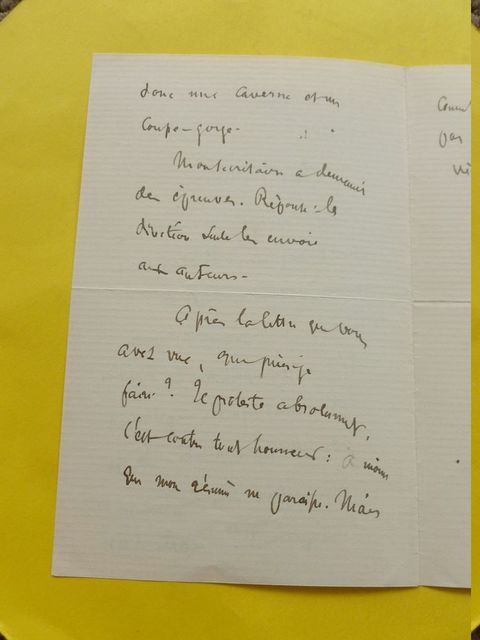 donc une caverne et un
coupe-gorge.
a demandé
des épreuves. Réponse : la
direction seule les envoie
aux auteurs.
Après la lettre que vous
avez vue, que puis-je
faire ? Je proteste absolument,
c'est contre tout honneur : à moins
que mon génie ne paraisse. Mais
par